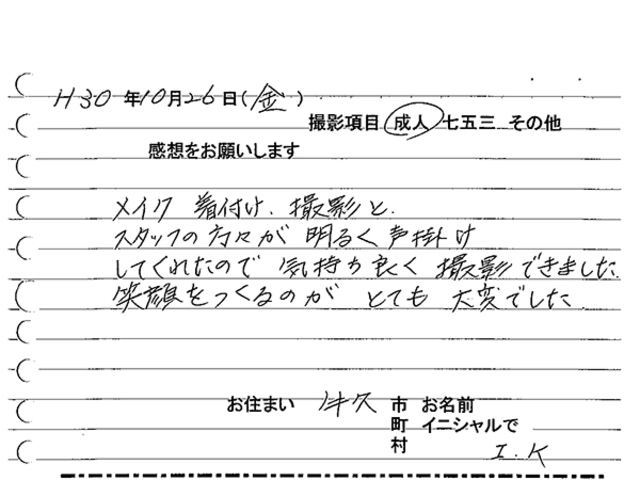 H30年10月26日(金)
撮影項目 成人 七五三 その他
感想をお願いします
メイク 着付け、撮影と、
スタッフの方々が 明るく声掛け
してくれたので 気持ち良く 撮影できました。
笑顔をつくるのが とても 大変でした
お住まい 市 お名前
町 イニシャルで
村 I.K